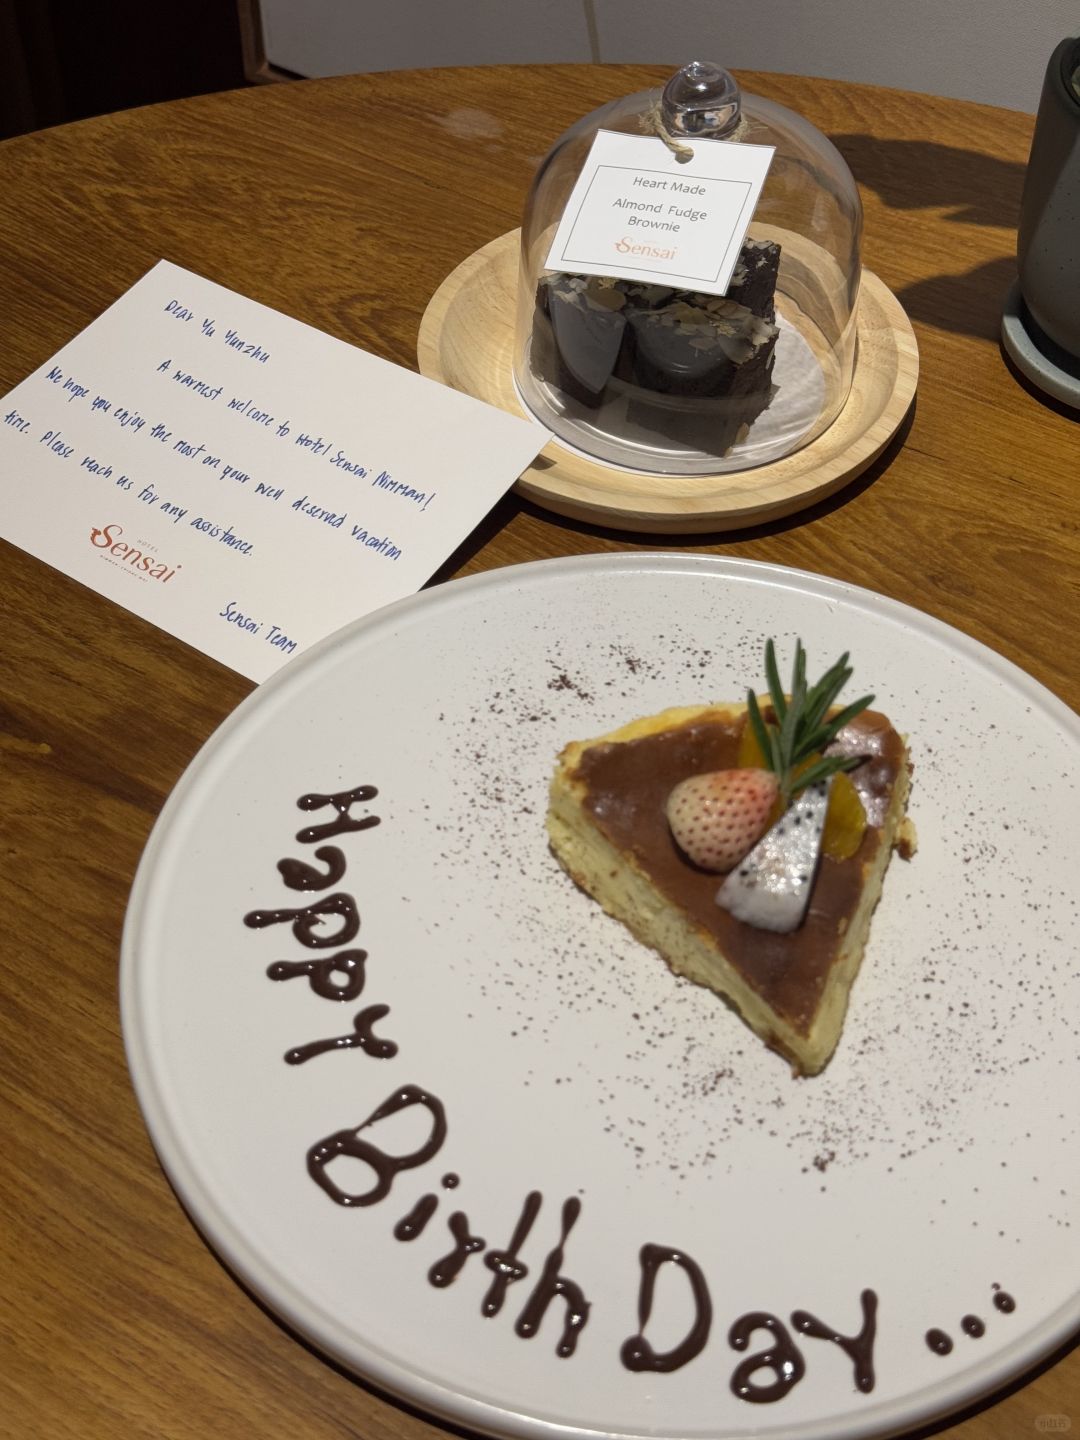 Heart Made
Almond Fudge
Brownie
Sensai
Dear Yu Yunzhu
A warmest welcome to Hotel Sensai Nimman!
We hope you enjoy the most on your well deserved vacation
time. Please reach us for any assistance.
HOTEL
Sensai
NIMMAN CHIANG MAI
Sensai Team
Happy BirthDay...
小红书